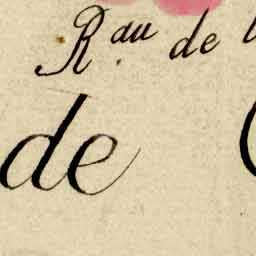 R.au de
de